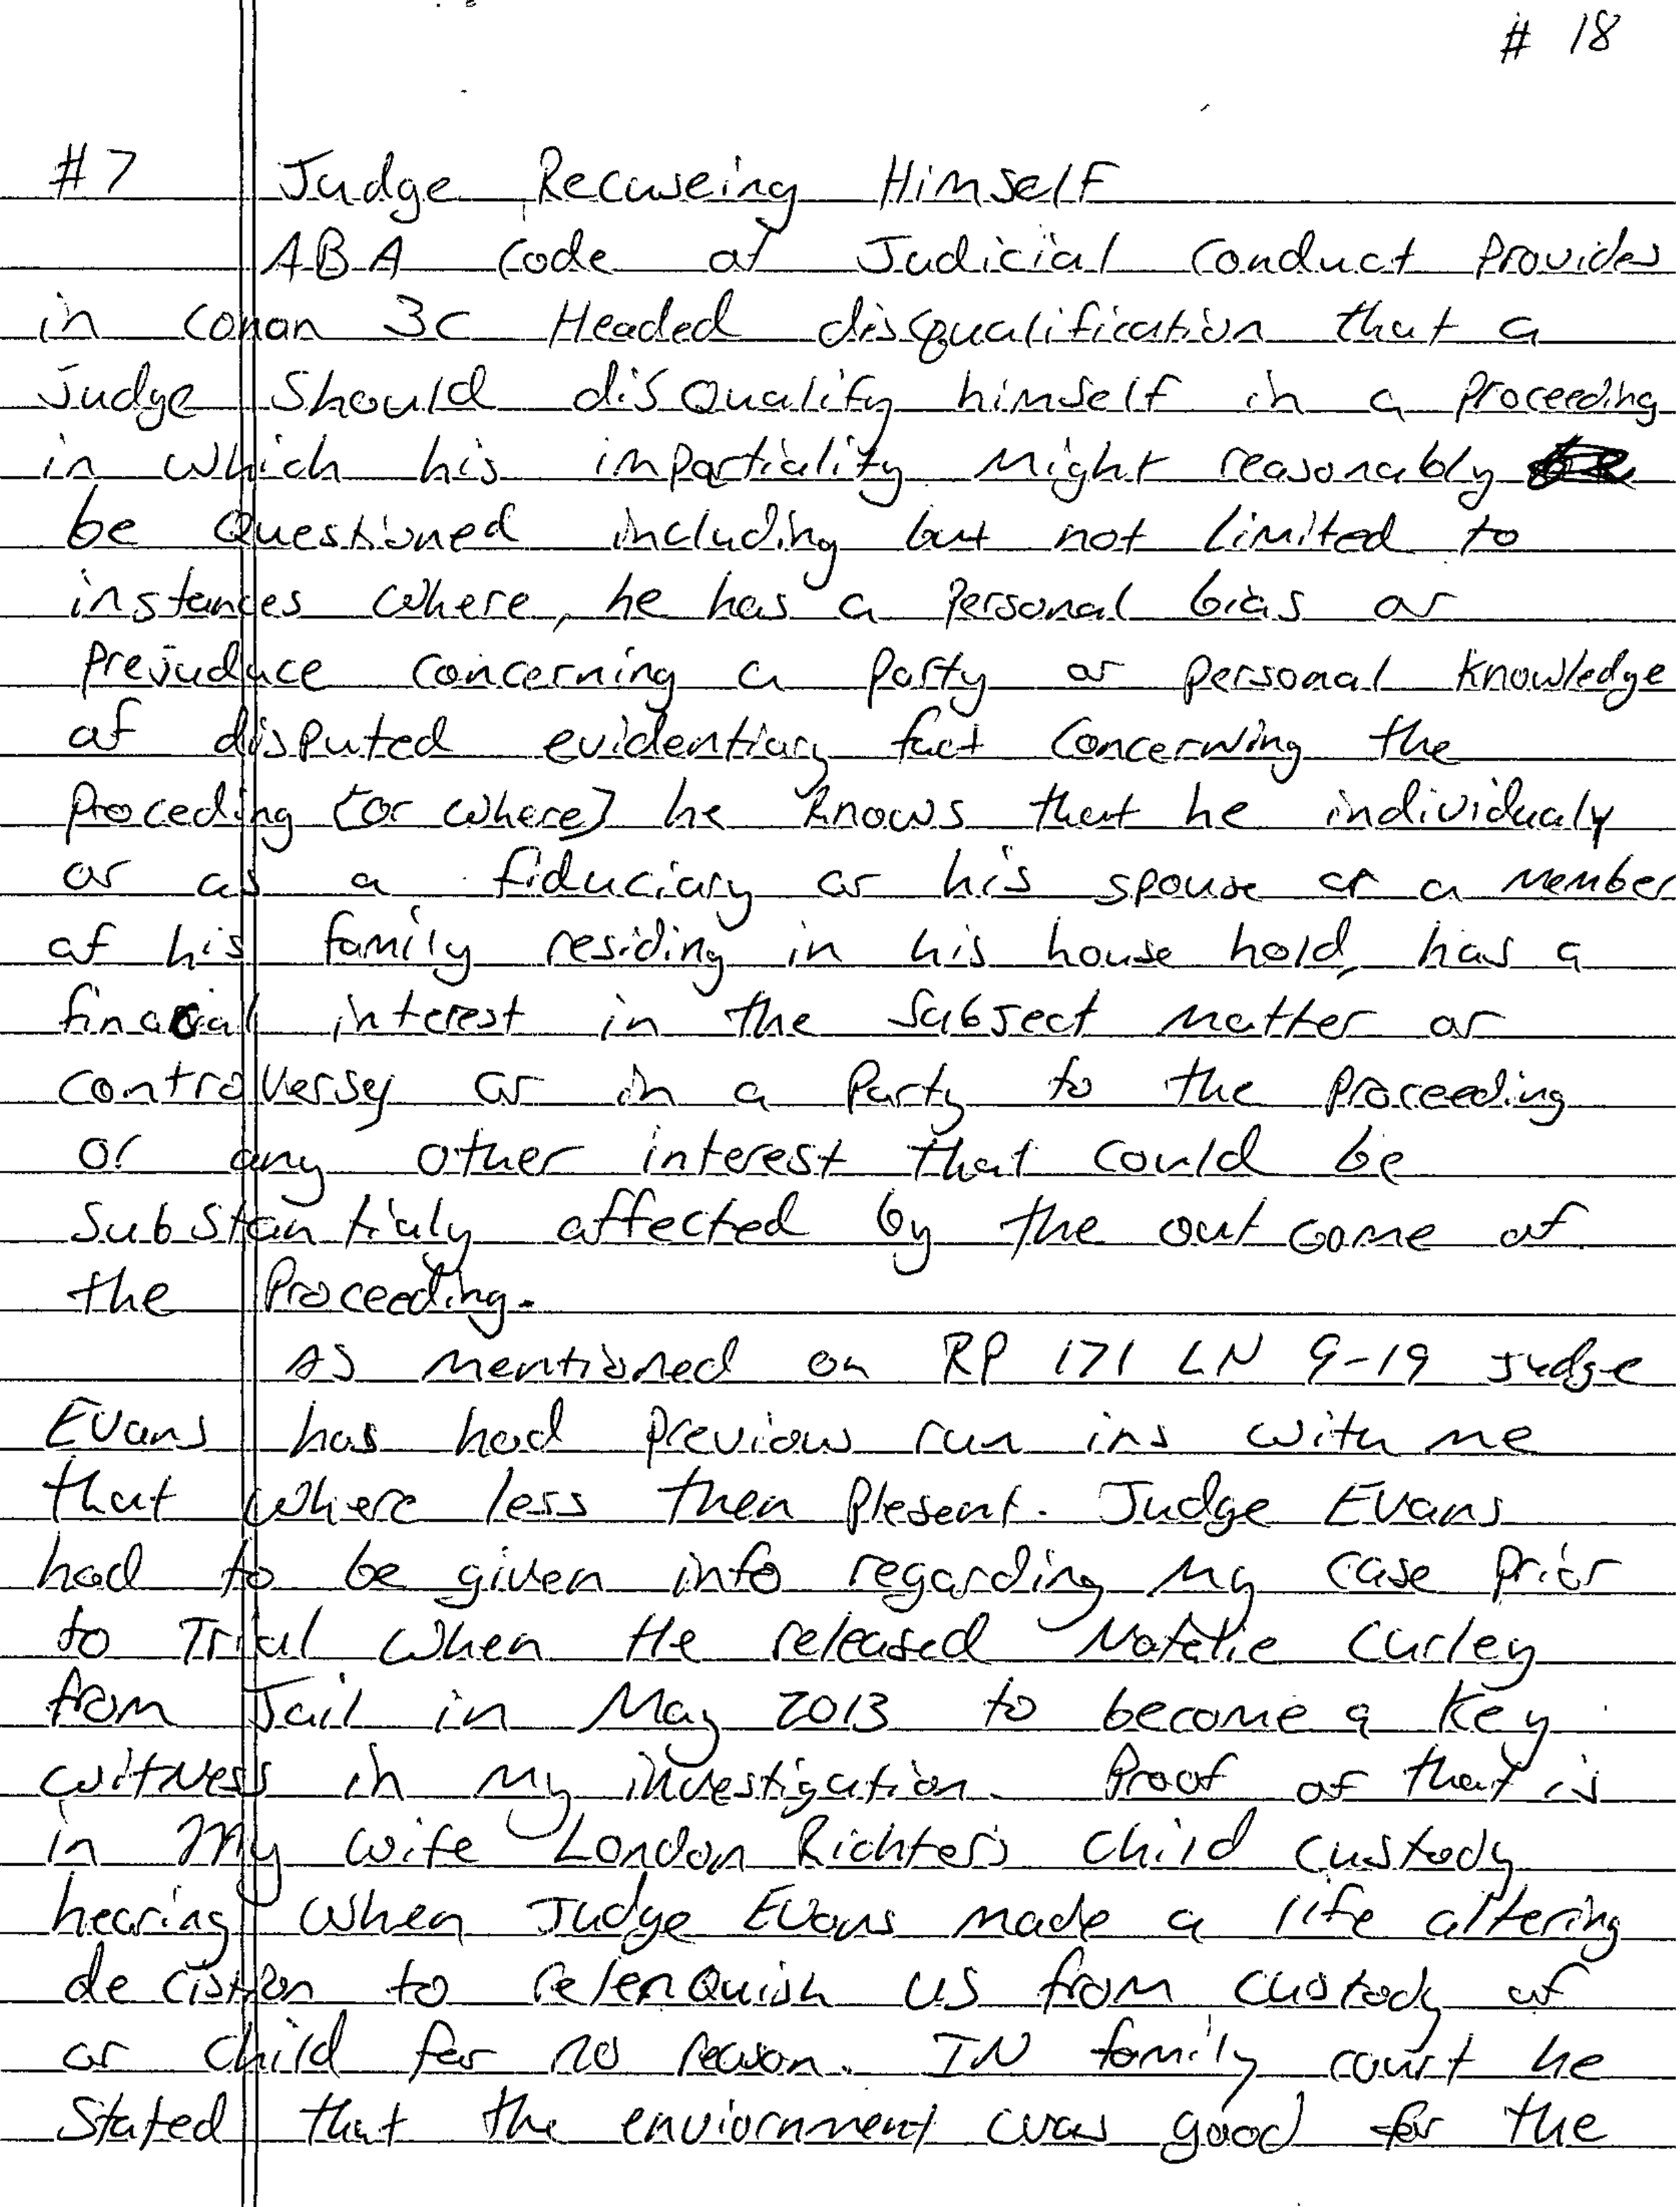 # 18
#7 Judge Recuseing Himself
ABA Code of Judicial Conduct Provides
in conan 3C Headed disqualification that a
Judge Should disqualify himself in a proceeding
in which his impartiality might reasonably
be questioned including but not limited to
instances where, he has a personal bias or
prejuduce concerning a party or personal knowledge
of disputed evidentiary fact concerning the
proceding [or where] he knows that he individualy
or as a fiduciary or his spouse or a member
of his family residing in his house hold, has a
finacial interest in the subject matter or
controlversey or in a party to the proceeding
or any other interest that could be
substantialy affected by the out come of
the Proceeding.
As mentioned on RP 171 LN 9-19 Judge
Evans has had previous run ins with me
that where less then plesent. Judge Evans
had to be given info regarding my case prior
to Trial when He released Natelie Curley
from Jail in May 2013 to become a key
witness in my investigation. Proof of that is
in my wife London Richters child custody
hearing when Judge Evans made a life altering
decistion to relenquish us from custody of
or child for no reason. IN family court he
Stated that the enviornment was good for the